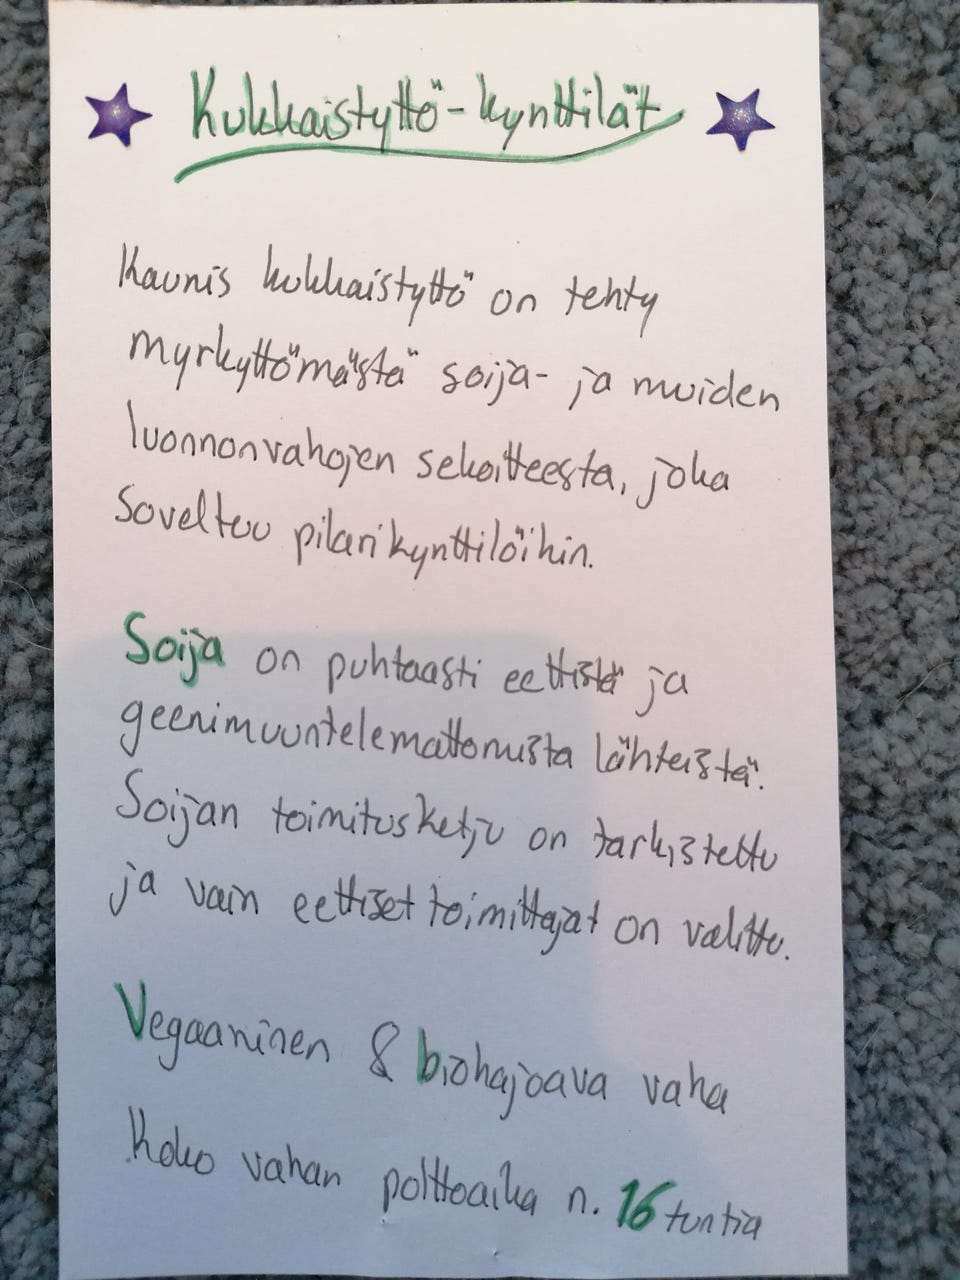 Kukkaistyttö-kynttilät
Kaunis kukkaistyttö on tehty
myrkyttömästä soija- ja muiden
luonnonvahojen sekoitteesta, joka
soveltuu pilarikynttilöihin.
Soija on puhtaasti eettistä ja
geenimuuntelemattomista lähteistä.
Soijan toimitusketju on tarkistettu
ja vain eettiset toimittajat on valittu.
Vegaaninen & biohajoava vaha
Koko vahan polttoaika n. 16 tuntia